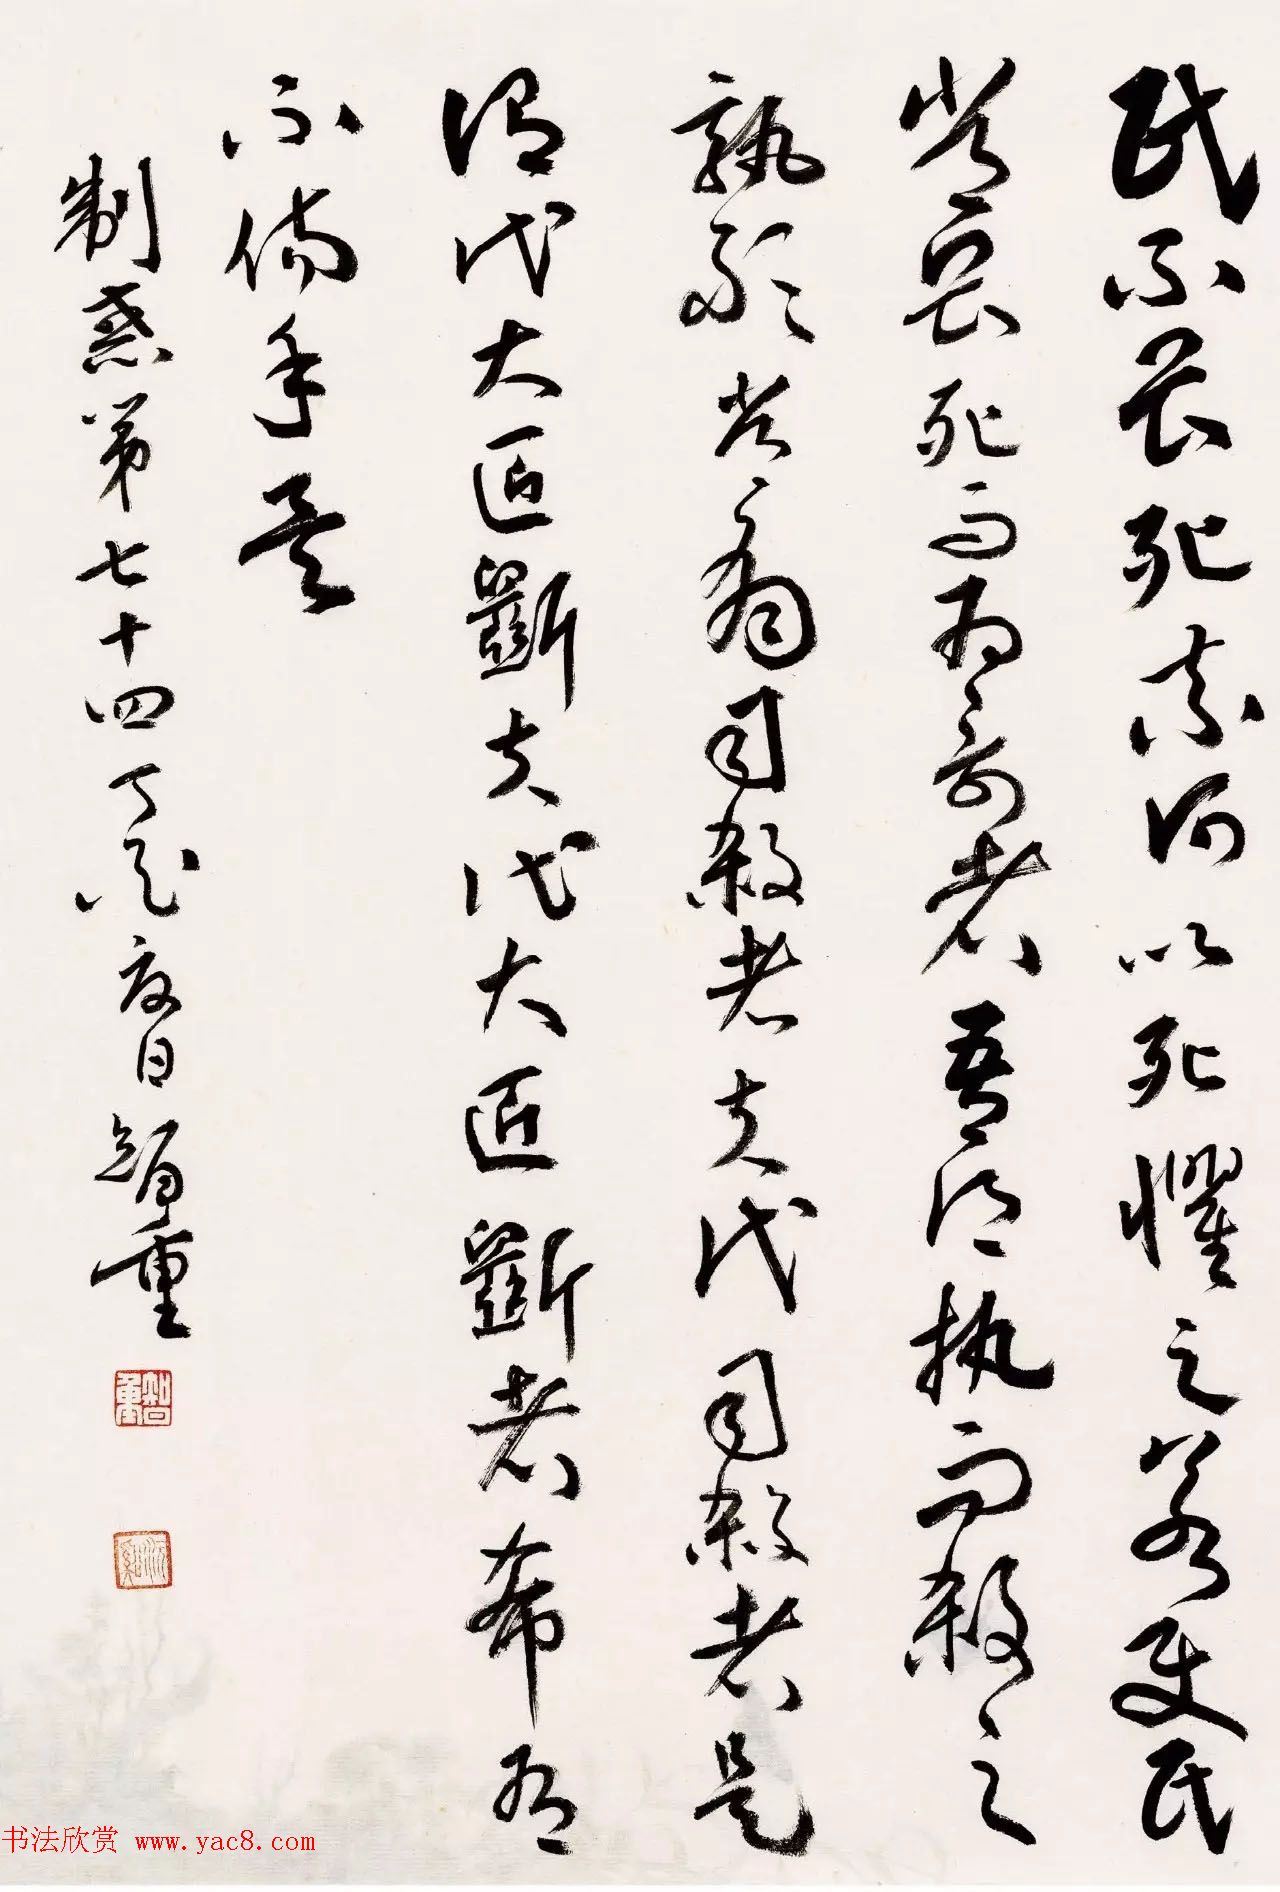 民不畏死奈何以死懼之若使民
常畏死而為奇者吾得执而殺之
孰敢常有司殺者夫代司殺者是
謂代大匠斲夫代大匠斲者希有
不傷手矣
制惑第七十四丁夏日智重
智重
书法欣赏 www.yac8.com